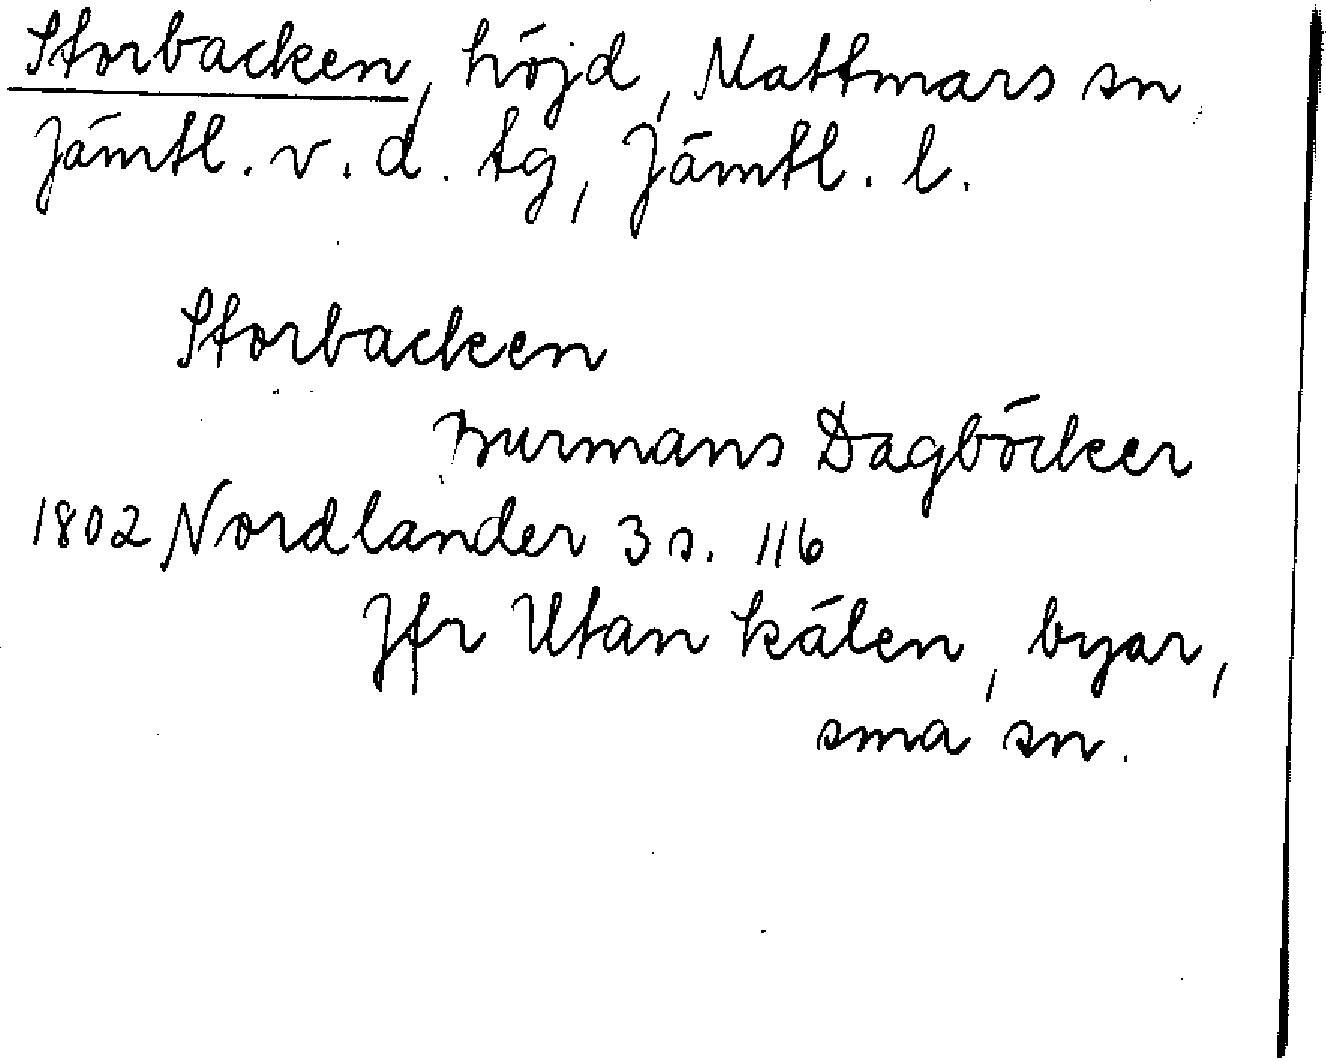 Storbacken, höjd, Mattmars sn
Jämtl. v. d. tg, Jämtl. l.
Storbacken
Burmans Dagböcker
1802 Nordlander 3 s. 116
Jfr Utan kålen, byar,
sma sn.